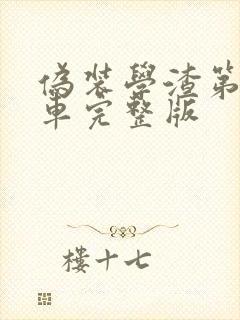 偽裝學渣第
車完整版
樓十七